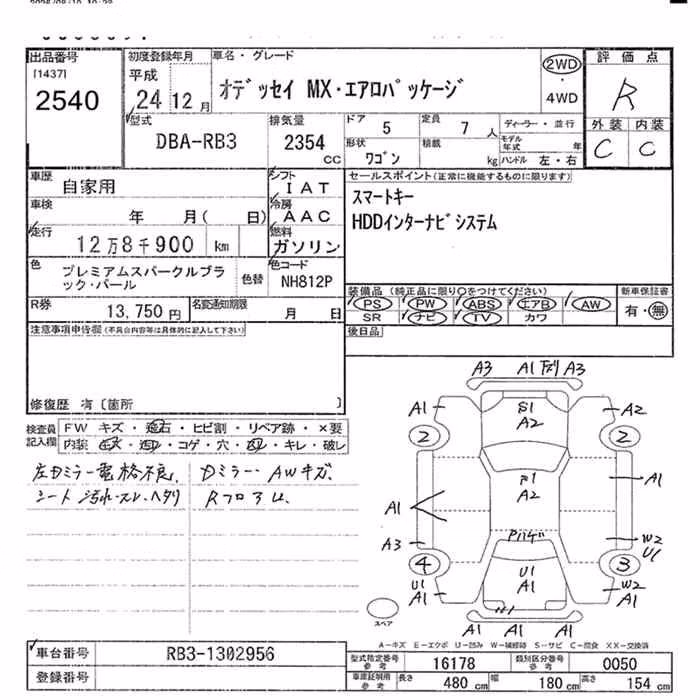 出品番号
[1437]
2540
初度登録年月
平成
24 12 月
車名・グレード
オデッセイ MX・エアロパッケージ
2WD
・
4WD
評価点
R
外装 内装
C C
型式
DBA-RB3
排気量
2354
CC
ドア 5
定員 7 人
形状 ワゴン
積載 kg
ディーラー・並行
モデル年式 年
ハンドル 左・右
車歴
自家用
シフト
IAT
車検
年 月( 日)
冷房
AAC
走行
12万8千900 km
燃料
ガソリン
色
プレミアムスパークルブラック・パール
色替
色コード
NH812P
R券
13,750 円
名変通知期限
月 日
セールスポイント(正常に機能するものに限ります)
スマートキー
HDDインターナビシステム
装備品 (純正品に限り○をつけてください)
PS PW ABS エアB AW
SR ナビ TV カワ
新車保証書
有・無
後日品
注意事項申告欄(不具合内容等は具体的に記入して下さい)
修復歴 有〔箇所 〕
検査員記入欄
FW キズ・飛石・ヒビ割・リペア跡・×要
内装 ・コゲ・穴・ ・キレ・破レ
左Dミラー電格不良、 Dミラー・AWキズ、
シート汚れ・スレ・ヘタリ
A3 A1 A3
A1 S1 A2 A2
2 2
A1 A2 A1
A1
A3 W2 U1
4 3
U1 A1 U1 A1 W2 A1
A1 A1
スペア
A-キズ E-エクボ U-凹み W-補修跡 S-サビ C-腐食 XX-交換済
車台番号
RB3-1302956
登録番号
型式指定番号 参考
16178
類別区分番号 参考
0050
車庫証明用 参考
長さ 480 cm
幅 180 cm
高さ 154 cm